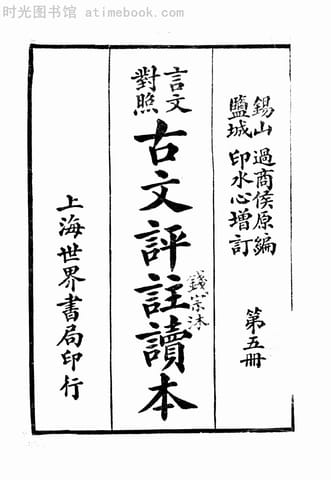 时光图书馆 atimebook.com
錫山 過商侯原編
鹽城 印水心增訂
第五冊
言文
對照
古文評註讀本
錢宗沐
上海世界書局印行